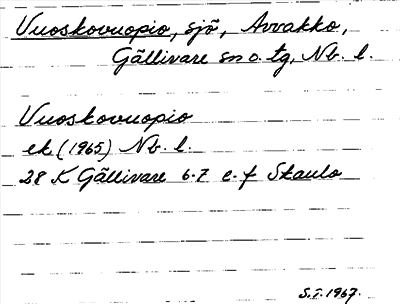 Vuoskovuopio, sjö, Avvakko,
Gällivare sn o. tg, Nb. l.
Vuoskovuopio
ek (1965) Nb. l.
28 K Gällivare 6-7 e-f Skaulo
S.I. 1967.